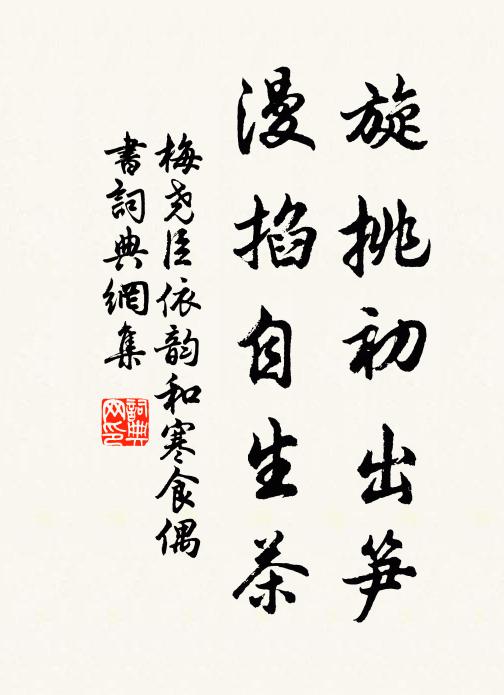 旋挑初出笋
漫掐自生茶
梅尧臣依韵和寒食偶
書詞典網集
詞典网印